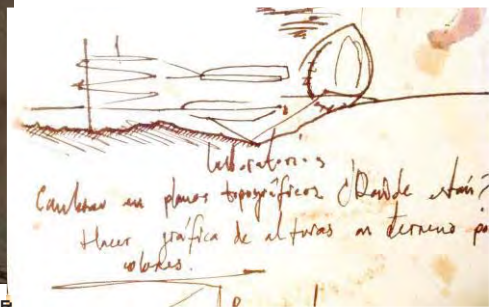 Laboratorios
en planos topográficos ¿Donde están?
Hacer gráfica de alturas en terreno po
colores.